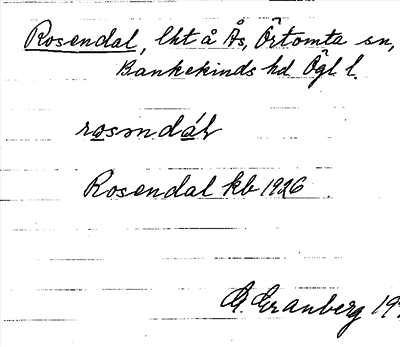 Rosendal, lht å Ås, Örtomta sn,
Bankekinds hd Ögl l.
rosəndáL
Rosendal kb 1926
G. Granberg 19